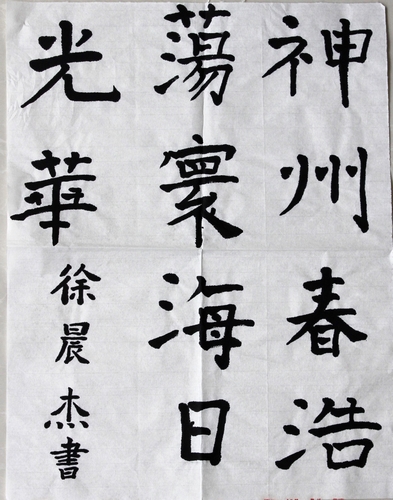 神州春浩
蕩寰海日
光華
徐晨杰書